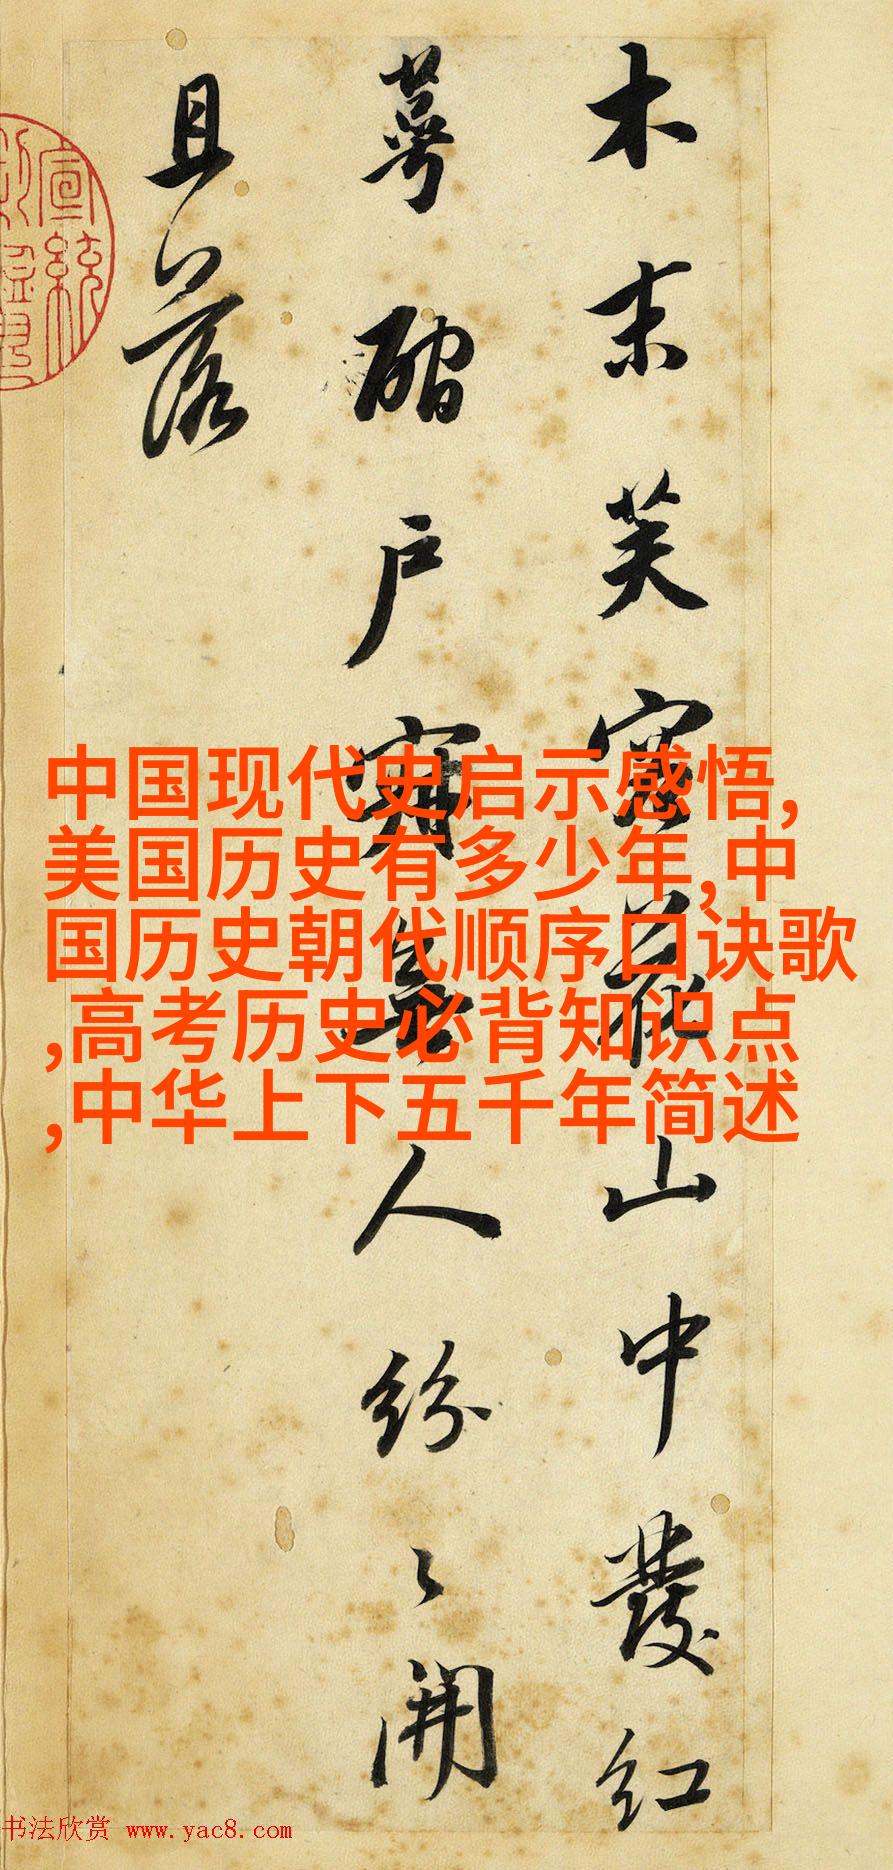 木末芙蓉花山中發紅
萼磵戶寂無人紛〻開
且落
宣統
中国现代史启示感悟,
美国历史有多少年,中
国历史朝代顺序口诀歌
,高考历史必背知识点
,中华上下五千年简述
书法欣赏 www.yac8.com